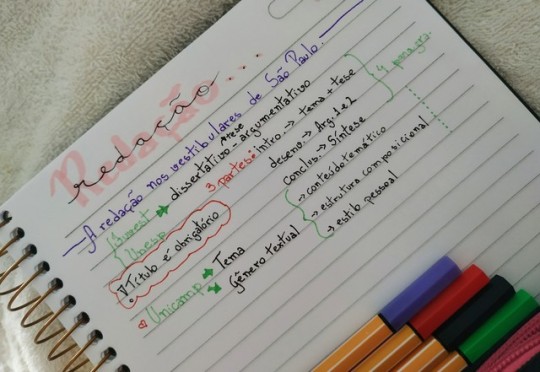 Redação
redação...
A redação nos vestibulares de São Paulo.
Fuvest
Unesp
dissertativo - argumentativo
tese
3 partes intro. → tema + tese
desenv. → Arg. 1 e 2
conclus. → Síntese
4 paragra.
Título é obrigatório
Unicamp → Tema
→ Gênero textual
→ conteúdo temático
→ estrutura composicional
→ estilo pessoal